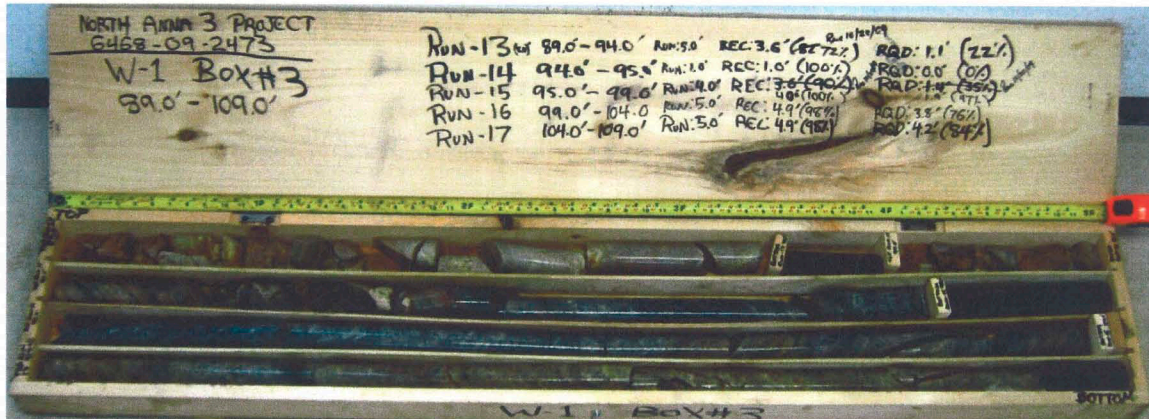 NORTH ANNA 3 PROJECT
6468-09-2473
W-1 BOX#3
89.0'-109.0'
RUN-13 89.0'-94.0' RUN:5.0' REC:3.6' 72%) RQD:1.1' (22%)
RUN-14 94.0'-95.0' RUN:1.0' REC:1.0' (100%) RQD:0.0' (0%)
RUN-15 95.0'-99.0' RUN:4.0' REC:3.6' (90%) RQD:1.4' (35%)
4.0' (100%)
RUN-16 99.0'-104.0 RUN:5.0' REC:4.9' (98%) RQD:3.8' (76%)
RUN-17 104.0'-109.0' RUN:5.0' REC:4.9' (98%) RQD:4.2' (84%)
TOP
BOTTOM
W-1 BOX#3